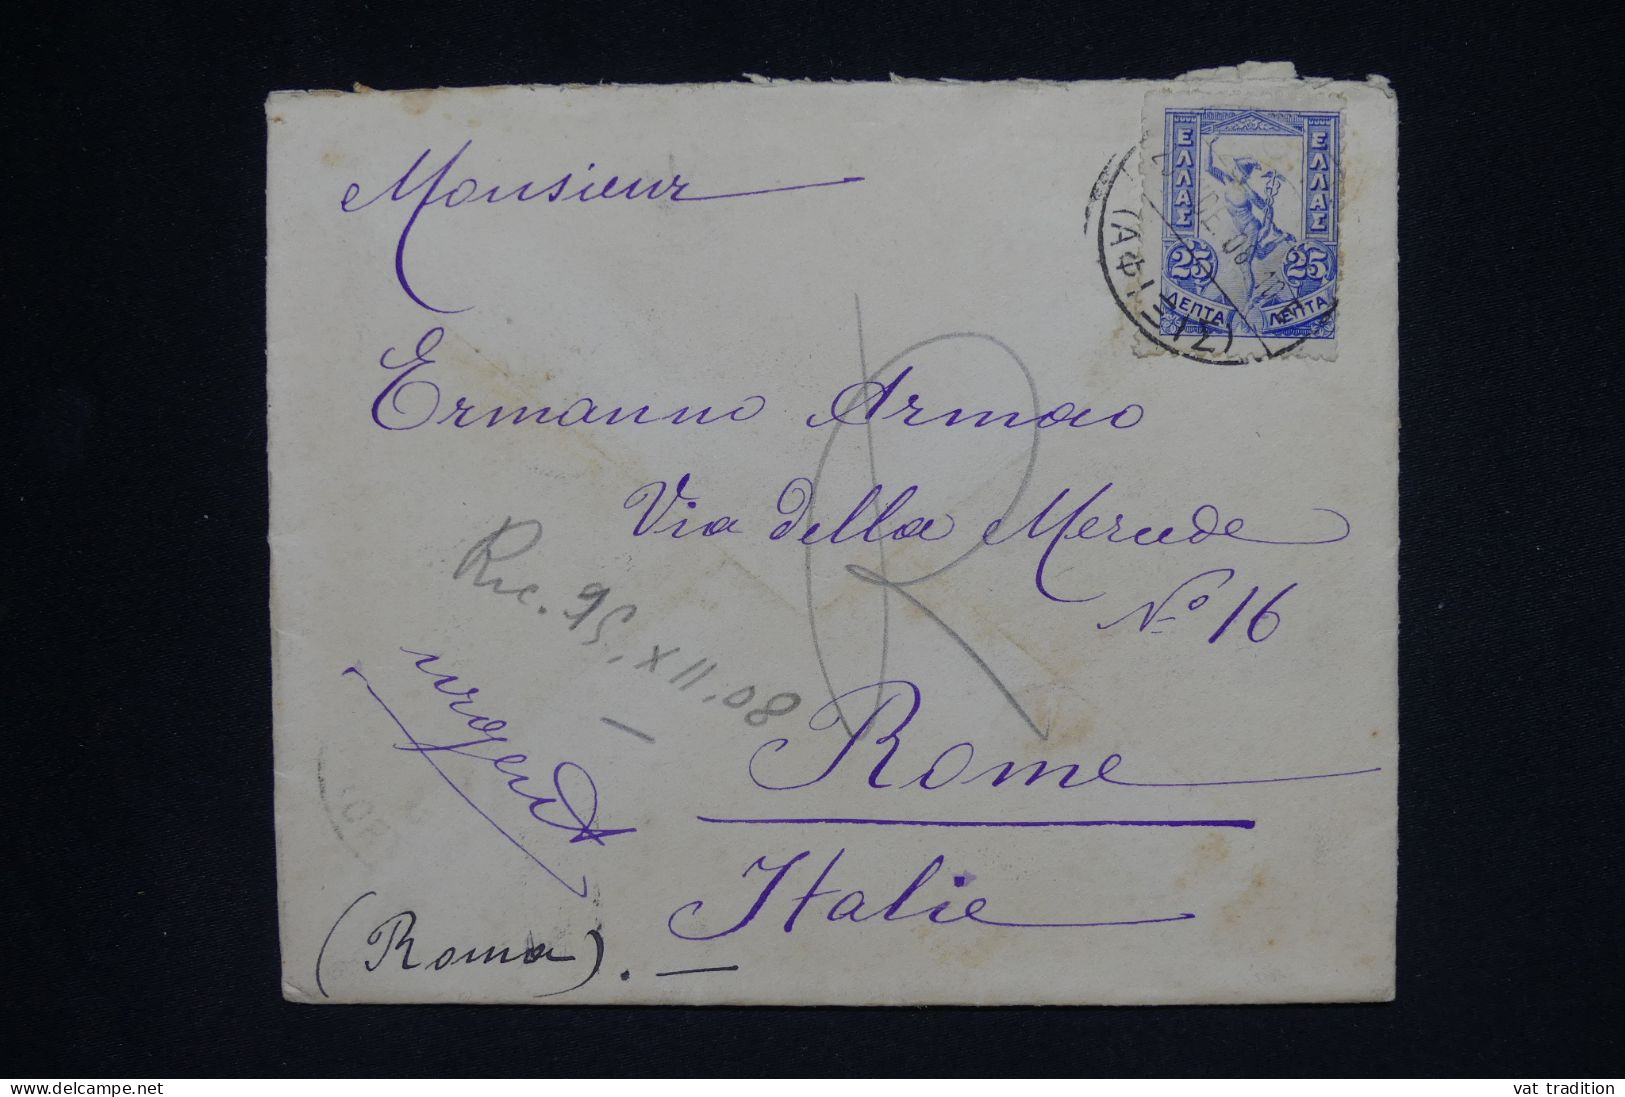 Monsieur
Ermanno Armao
Via della Mercede
Nº 16
Rome
Italie
urgent
(Roma).
R
Ric. 95. XII. 08
ΕΛΛΑΣ
ΕΛΛΑΣ
25 25
ΛΕΠΤΑ ΛΕΠΤΑ
(ΑΦΙΞΙΣ)
www.delcampe.net
vat tradition